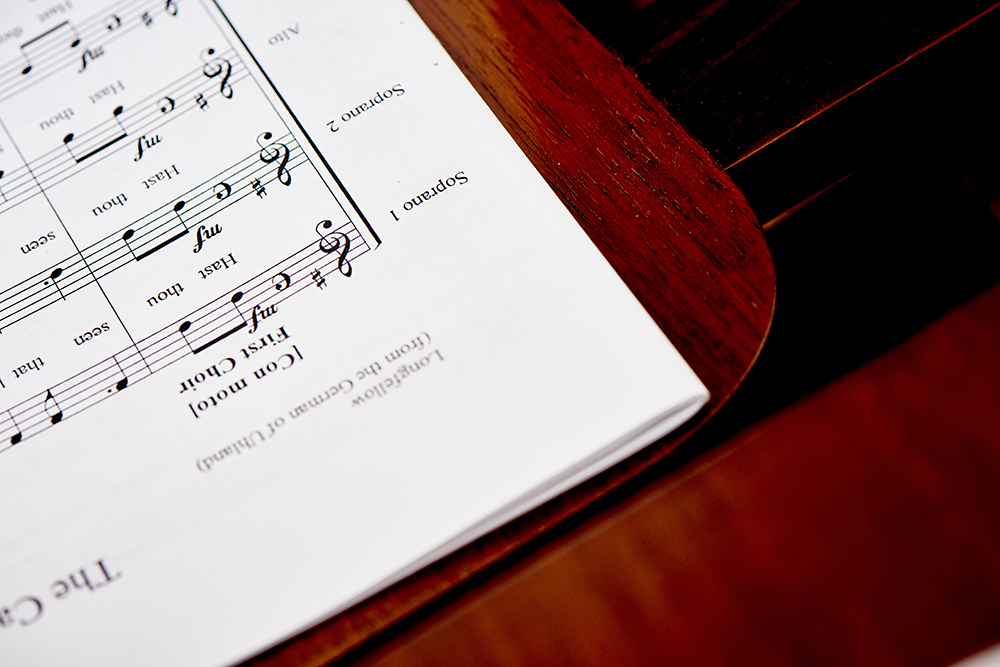 The Ca
Longfellow
(from the German of Uhland)
[Con moto]
First Choir
mf
Soprano 1
Hast thou seen that
mf
Soprano 2
Hast thou seen
mf
Alto
Hast thou
mf
Hast